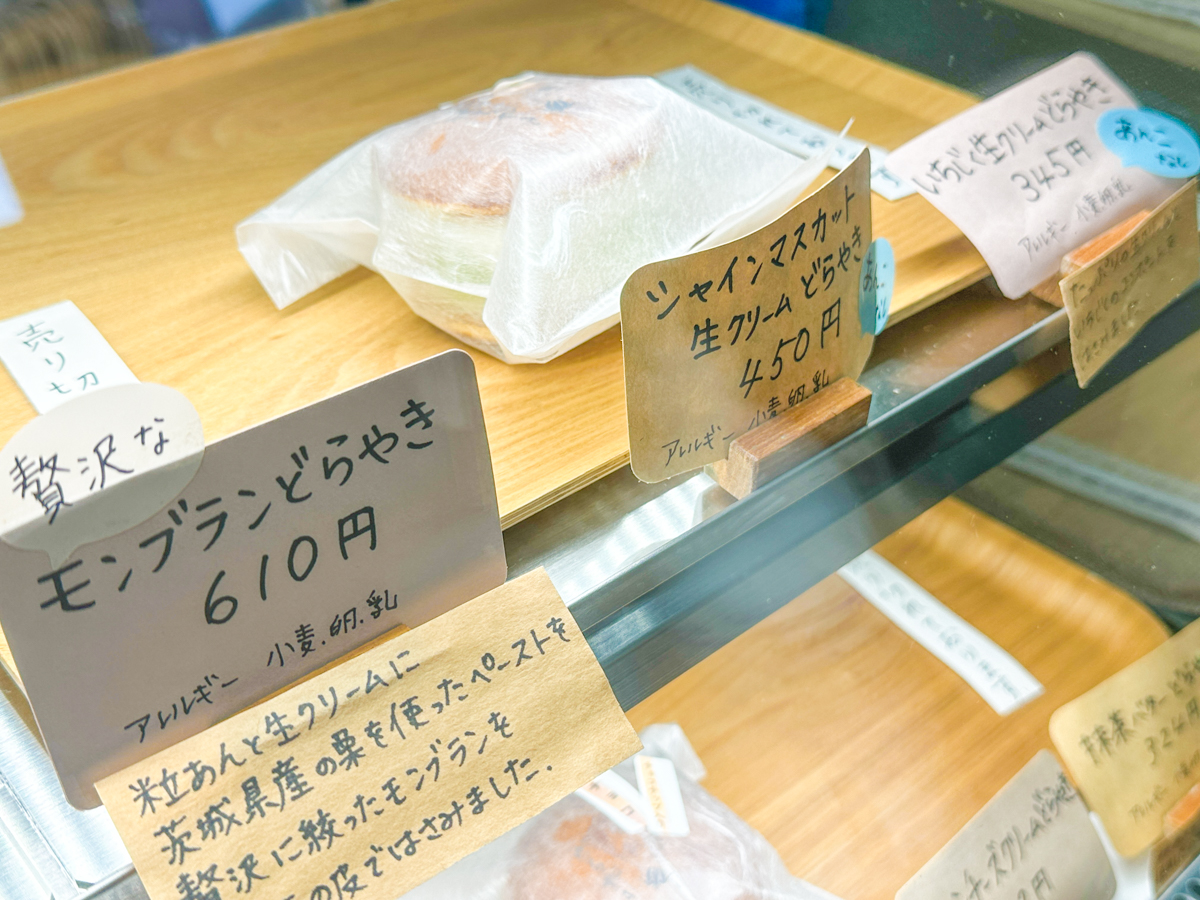 売り切
贅沢な
モンブランどらやき
610円
アレルギー 小麦.卵.乳
粒あんと生クリームに
茨城県産の栗を使ったペーストを
贅沢に絞ったモンブランを
の皮ではさみました.
シャインマスカット
生クリームどらやき
450円
アレルギー 小麦.卵.乳
いちじく生クリームどらやき
345円
アレルギー 小麦.卵.乳
あんこ
なし
抹茶バターどら
324円
チーズクリームどらやき
円